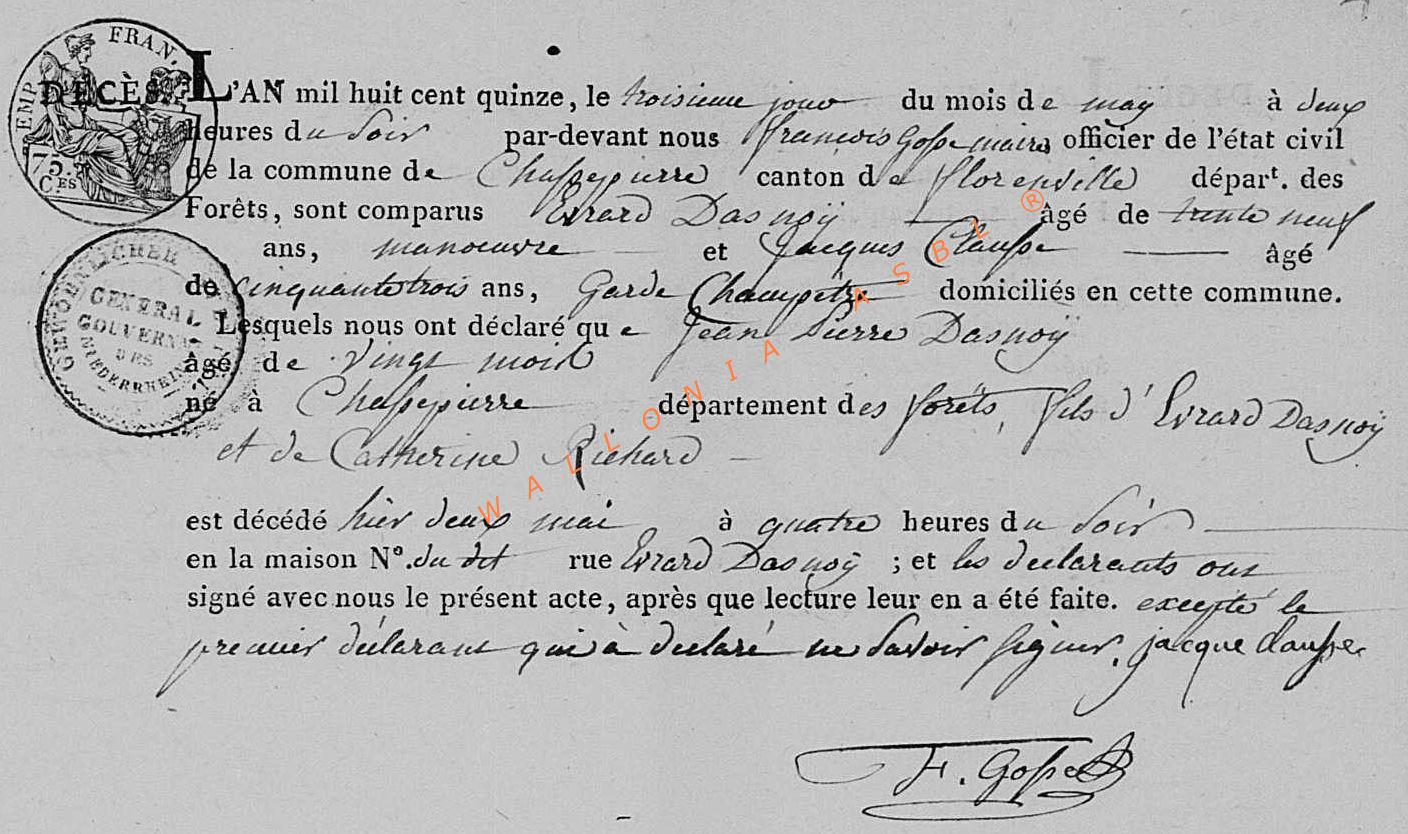 EMP. FRAN.
75.
CES
DÉCÈS. L'AN mil huit cent quinze, le troisieme jour du mois de may à deux
heures du Soir par-devant nous françois Gosse maire, officier de l'état civil
de la commune de Chassepierre canton de florenville départ. des
Forêts, sont comparus Evrard Dasnoÿ âgé de trente neuf
ans, manoeuvre et Jacques Clausse âgé
de cinquante trois ans, Garde Champêtre domiciliés en cette commune.
Lesquels nous ont déclaré que Jean Pierre Dasnoÿ
âgé de vingt mois
né à Chassepierre département des forêts, fils d'Evrard Dasnoÿ
et de Catherine Richard
est décédé hier deux mai à quatre heures du Soir
en la maison N°. du dit rue Evrard Dasnoÿ ; et les déclarants ont
signé avec nous le présent acte, après que lecture leur en a été faite. excepté le
premier déclarant qui à declaré ne Savoir signer. jacque clausse
F. Gosse
GENERAL
GOUVERNT
DES
NIEDERRHEINS
WALLONIA ASBL ®